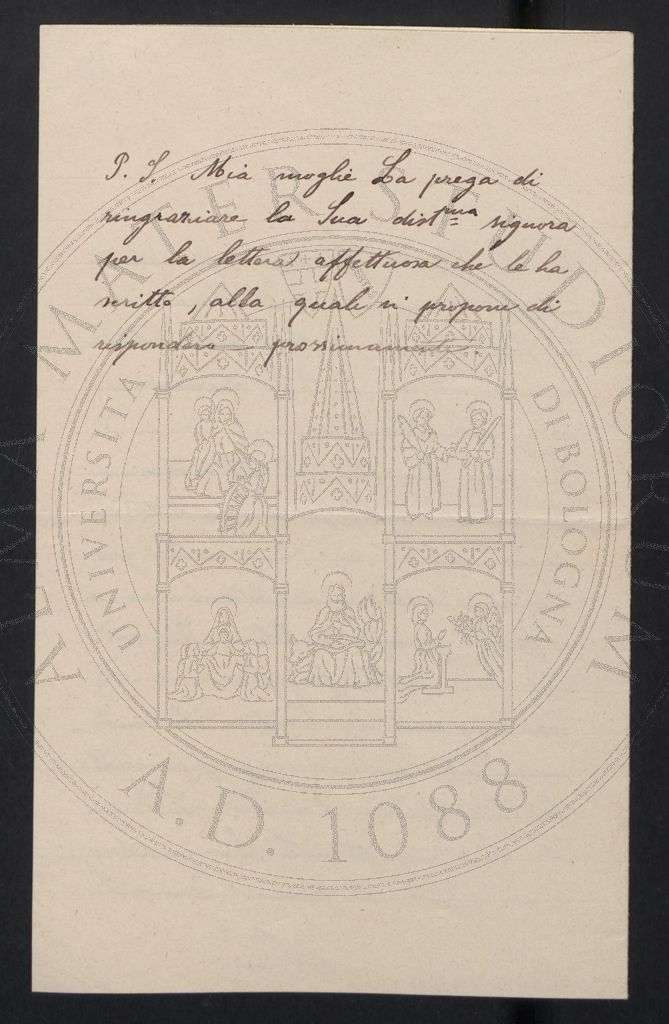 P. S. Mia moglie La prega di
ringraziare la Sua distma signora
per la lettera affettuosa che le ha
scritto, alla quale si propone di
rispondere prossimamente.
ALMA MATER STUDIORUM
UNIVERSITÀ DI BOLOGNA
A.D. 1088